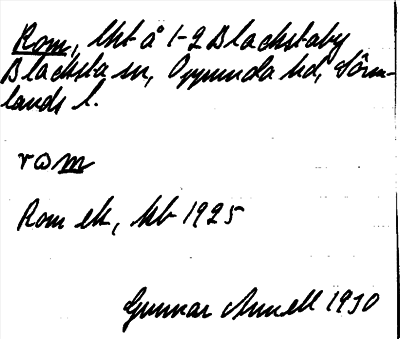 Rom, lht å 1-2 Blackstaby
Blacksta sn, Oppunda hd, Sörm-
lands l.
rɷm
Rom ek, kb 1925
Gunnar Annell 1930